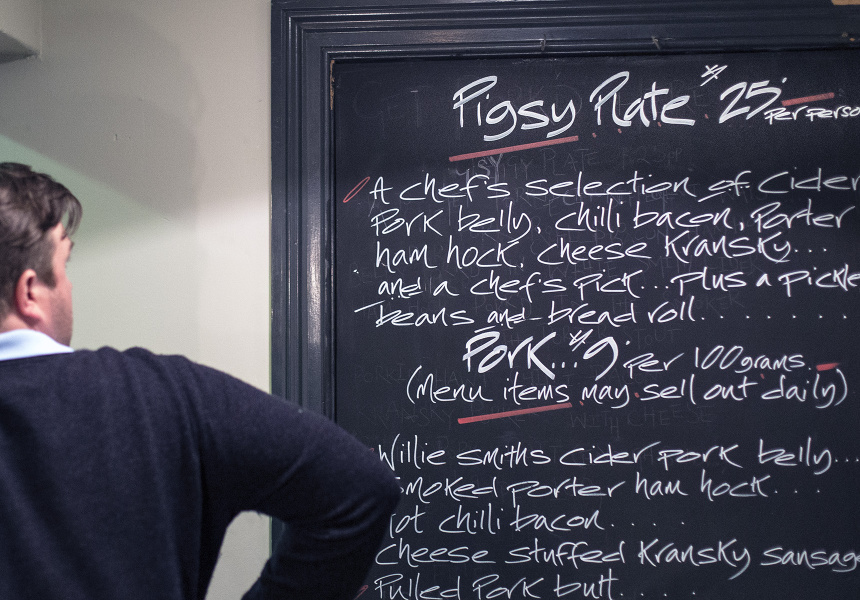 Pigsy Plate $25 per perso
A chef's selection of Cider
Pork belly, chilli bacon, Porter
ham hock, cheese Kransky...
and a chef's pick...plus a pickle
beans and bread roll........
Pork...$9 per 100grams.
(Menu items may sell out daily)
Willie smiths cider pork belly...
Smoked porter ham hock....
ot chilli bacon.....
Cheese stuffed Kransky sausag
Pulled Pork butt.....